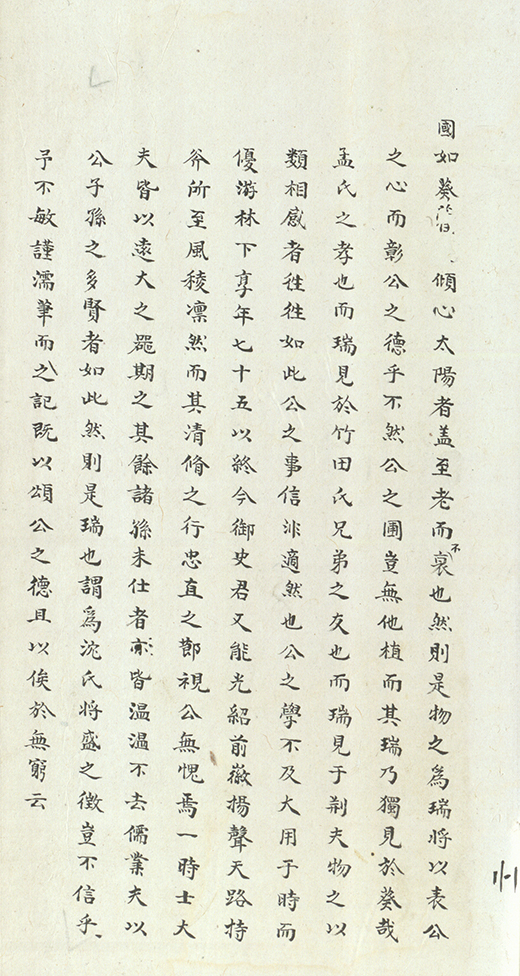 國如葵 傾心太陽者盖至老而不裒也然則是物之為瑞將以表公
之心而彰公之德乎不然公之圃豈無他植而其瑞乃獨見於葵哉
孟氏之孝也而瑞見於竹田氏兄弟之友也而瑞見于荆夫物之以
類相感者徃徃如此公之事信非適然也公之學不及大用于時而
優游林下享年七十五以終今御史君又能光紹前徽揚聲天路持
斧所至風稜凛然而其清脩之行忠直之節視公無愧焉一時士大
夫皆以遠大之噐期之其餘諸孫未仕者亦皆温温不去儒業夫以
公子孫之多賢者如此然則是瑞也謂為沈氏將盛之徴豈不信乎
予不敏謹濡筆而之記既以頌公之德且以俟於無窮云